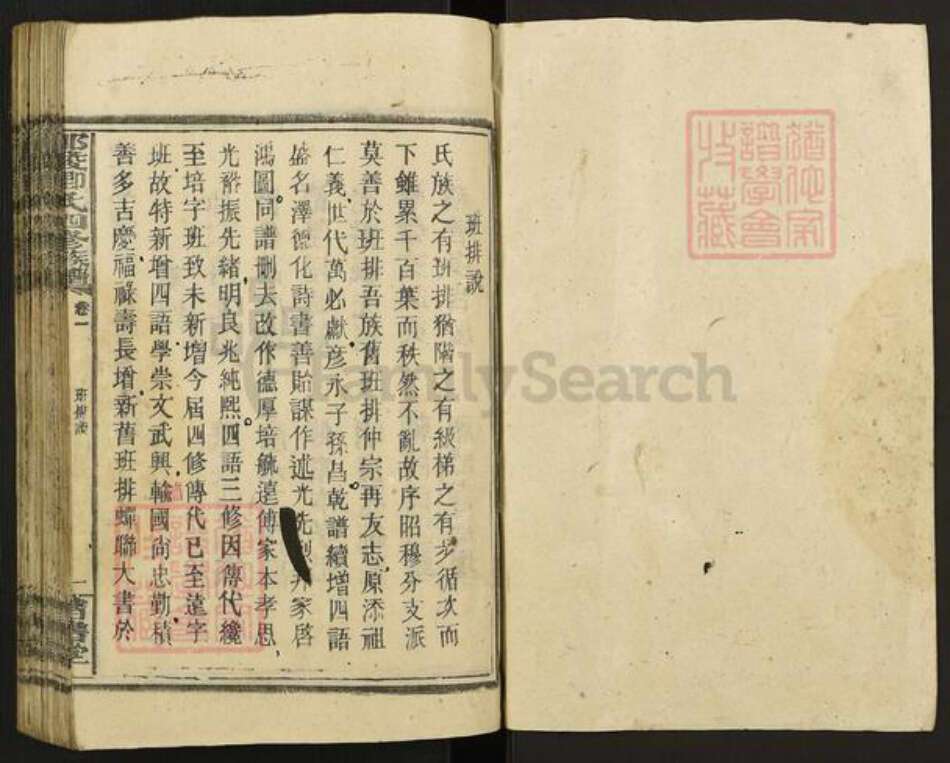 班排說
氏族之有班排猶階之有級梯之有步循次而
下雖累千百葉而秩然不亂故序昭穆分支派
莫善於班排吾族舊班排仲宗再友志原添祖
仁義世代萬必獻彥永子孫昌乾譜續增四語
盛名澤德化詩書善貽謀作述光先烈 家啓
鴻圖同譜刪去改作德厚培毓遠傳家本孝思
光裕振先緒明良兆純熙四語三修因傳代纔
至培字班致未新增今屆四修傳代已至遠字
班故特新增四語學崇文武興輸國尚忠勤積
善多吉慶福祿壽長增新舊班排蟬聯大書於
氏四修族譜
卷一
班排說
一
書堂
譜學會
收藏
FamilySearch